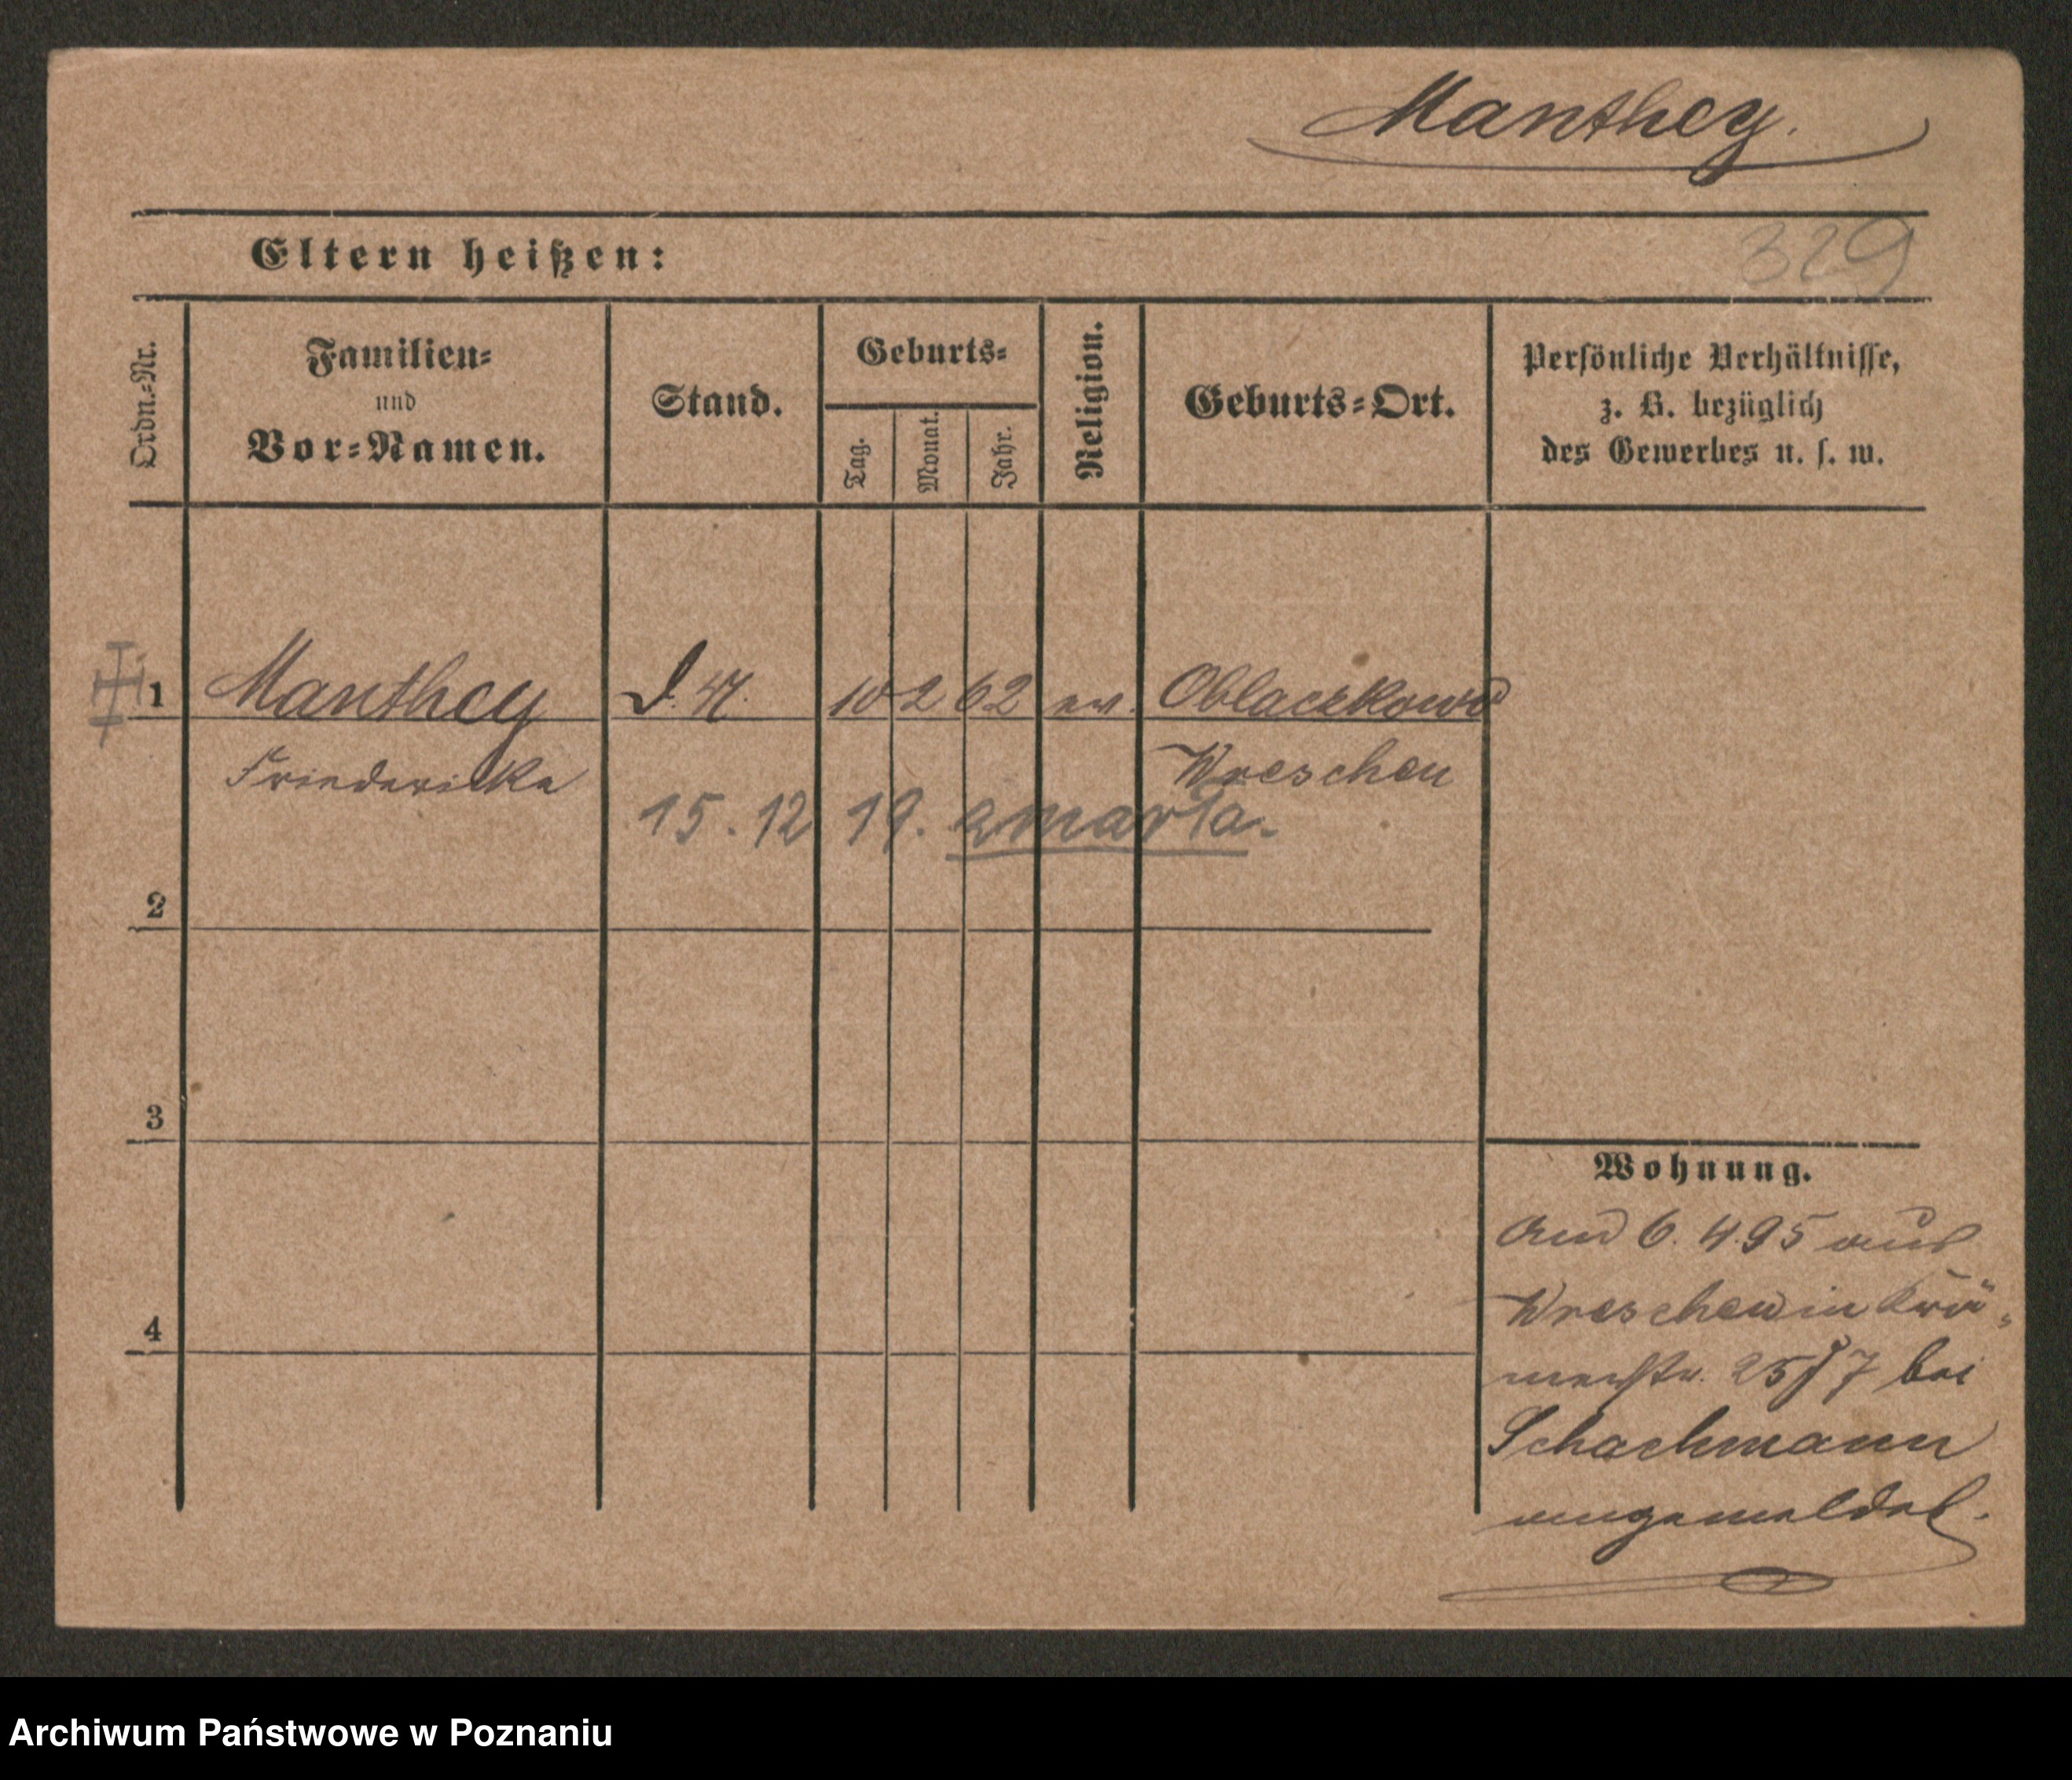 Manthey.
329
Eltern heißen:
Ordn.-Nr.
Familien-
und
Vor-Namen.
Stand.
Geburts-
Tag.
Monat.
Jahr.
Religion.
Geburts-Ort.
Persönliche Verhältnisse,
z. B. bezüglich
des Gewerbes u. s. w.
1 Manthey 10 2 62 ev. Oblaczkowo
Friederike Wreschen
15. 12 19. zmarła.
2
3
4
Wohnung.
6. 4. 95 aus
Wreschen in Krä-
merstr. 25 7 bei
Schachmann
angemeldet.
Archiwum Państwowe w Poznaniu